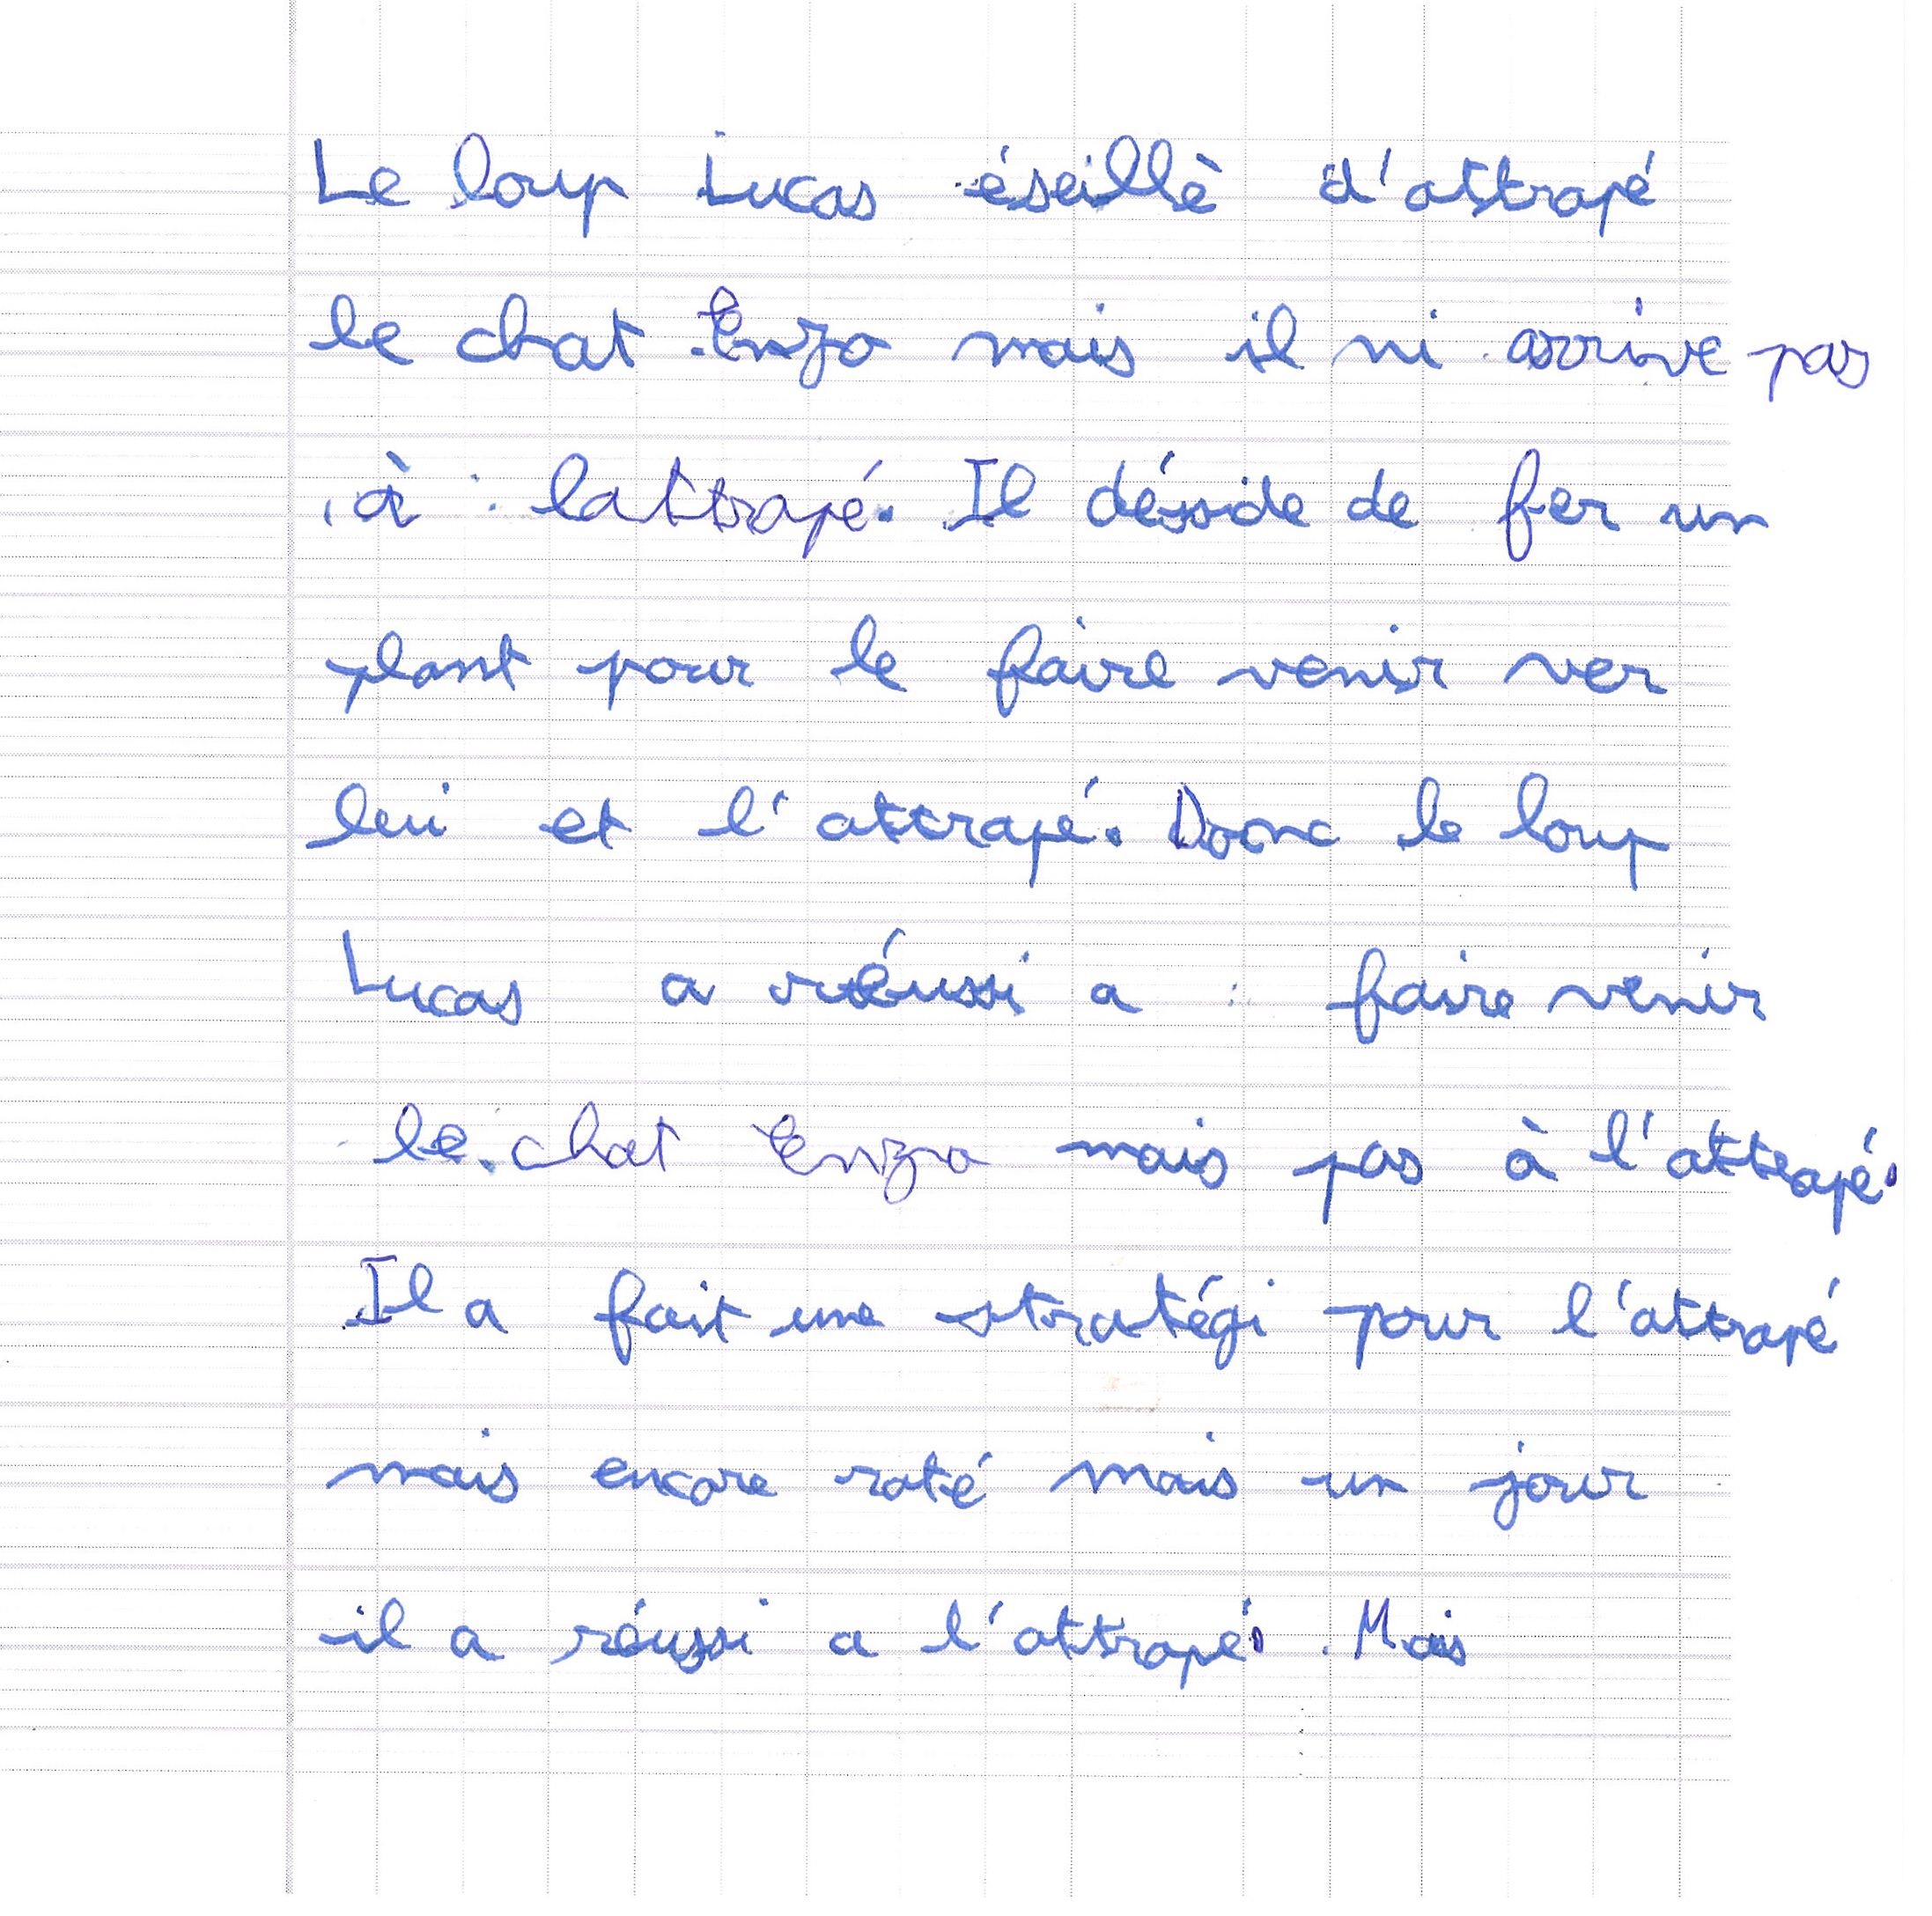 Le loup Lucas éseillè d'attrapé
le chat Enzo mais il ni arrive pas
à lattrapé. Il déside de fer un
plant pour le faire venir ver
lui et l'attrapé. Donc le loup
Lucas a réussi a faire venir
le chat Enzo mais pas à l'attrapé.
Il a fait une stratégi pour l'attrapé
mais encore raté mais un jour
il a réussi a l'attrapé. Mais